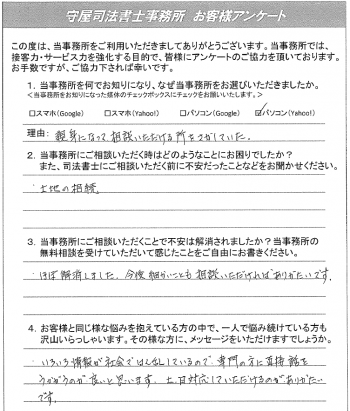 守屋司法書士事務所　お客様アンケート
この度は、当事務所をご利用いただきましてありがとうございます。当事務所では、
接客力・サービス力を強化する目的で、皆様にアンケートのご協力を頂いております。
お手数ですが、ご協力下されば幸いです。
1. 当事務所を何でお知りになり、なぜ当事務所をお選びいただきましたか。
＜当事務所をお知りになった媒体のチェックボックスにチェックをお願いいたします。＞
□スマホ(Google)　□スマホ(Yahoo!)　□パソコン(Google)　☑パソコン(Yahoo!)
理由: 親身になって相談いただける所をさがしていた。
2. 当事務所にご相談いただく時はどのようなことにお困りでしたか？
また、司法書士にご相談いただく前に不安だったことなどをお聞かせください。
・土地の相続。
3. 当事務所にご相談いただくことで不安は解消されましたか？当事務所の
無料相談を受けていただいて感じたことをご自由にお書きください。
・ほぼ解消しました。今後細かいことも相談いただければありがたいです。
4. お客様と同じ様な悩みを抱えている方の中で、一人で悩み続けている方も
沢山いらっしゃいます。その様な方に、メッセージをいただけますでしょうか。
・いろいろ情報が社会ではん乱しているので、専門の方に直接話を
うかがうのが良いと思います。土、日対応していただけるのがありがたい
です。